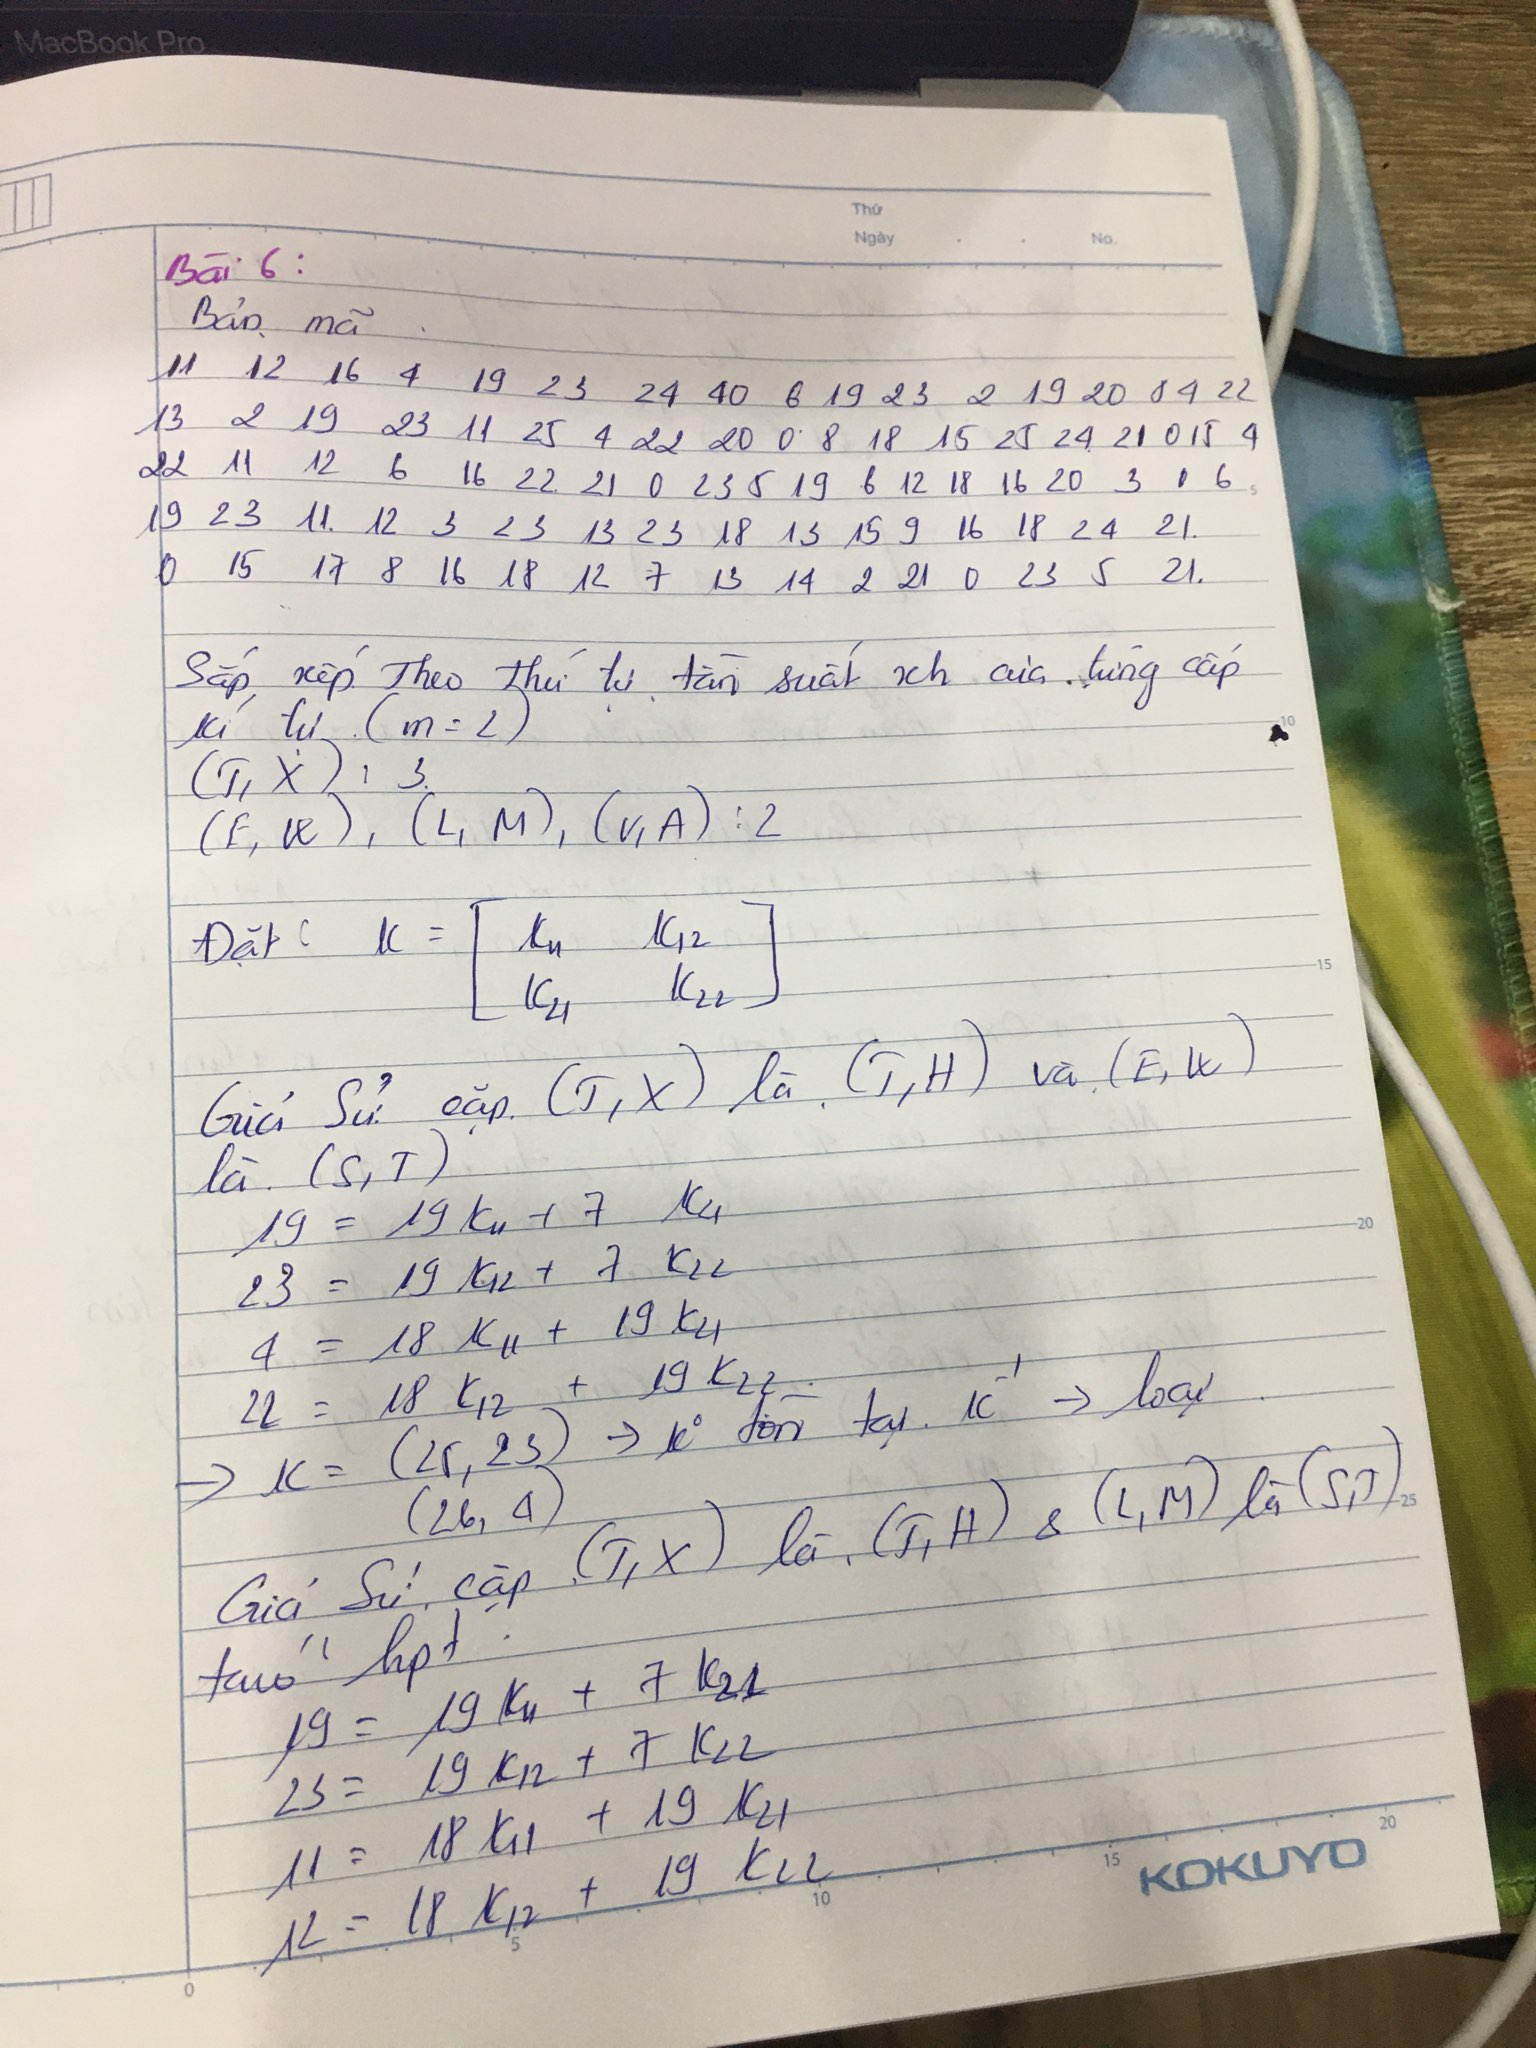 MacBook Pro
Thứ
Ngày . . No.
Bài 6:
Bản mã
11 12 16 4 19 23 24 40 6 19 23 2 19 20 8 4 22
13 2 19 23 11 25 4 22 20 0 8 18 15 25 24 21 0 15 4
22 11 12 6 16 22 21 0 23 5 19 6 12 18 16 20 3 1 6
19 23 11. 12 3 23 13 23 18 13 15 9 16 18 24 21.
0 15 17 8 16 18 12 7 13 14 2 21 0 23 5 21.
Sắp xếp theo thứ tự tần suất xh của từng cấp
kí tự (m = 2)
(T, X) : 3
(E, W), (L, M), (V, A) : 2
Đặt: K = [ K11 K12
K21 K22 ]
Giả sử cặp (T, X) là (T, H) và (E, W)
là (S, T)
19 = 19 K11 + 7 K21
23 = 19 K12 + 7 K22
4 = 18 K11 + 19 K21
22 = 18 K12 + 19 K22
→ K = (25, 23) → k° tồn tại K⁻¹ → loại
(26, 4)
Giả sử cặp (T, X) là (T, H) & (L, M) là (S, T)
hpt:
19 = 19 K11 + 7 K21
23 = 19 K12 + 7 K22
11 = 18 K11 + 19 K21
12 = 18 K12 + 19 K22
KOKUYO
5
10
15
20
25
0
5
10
15
20